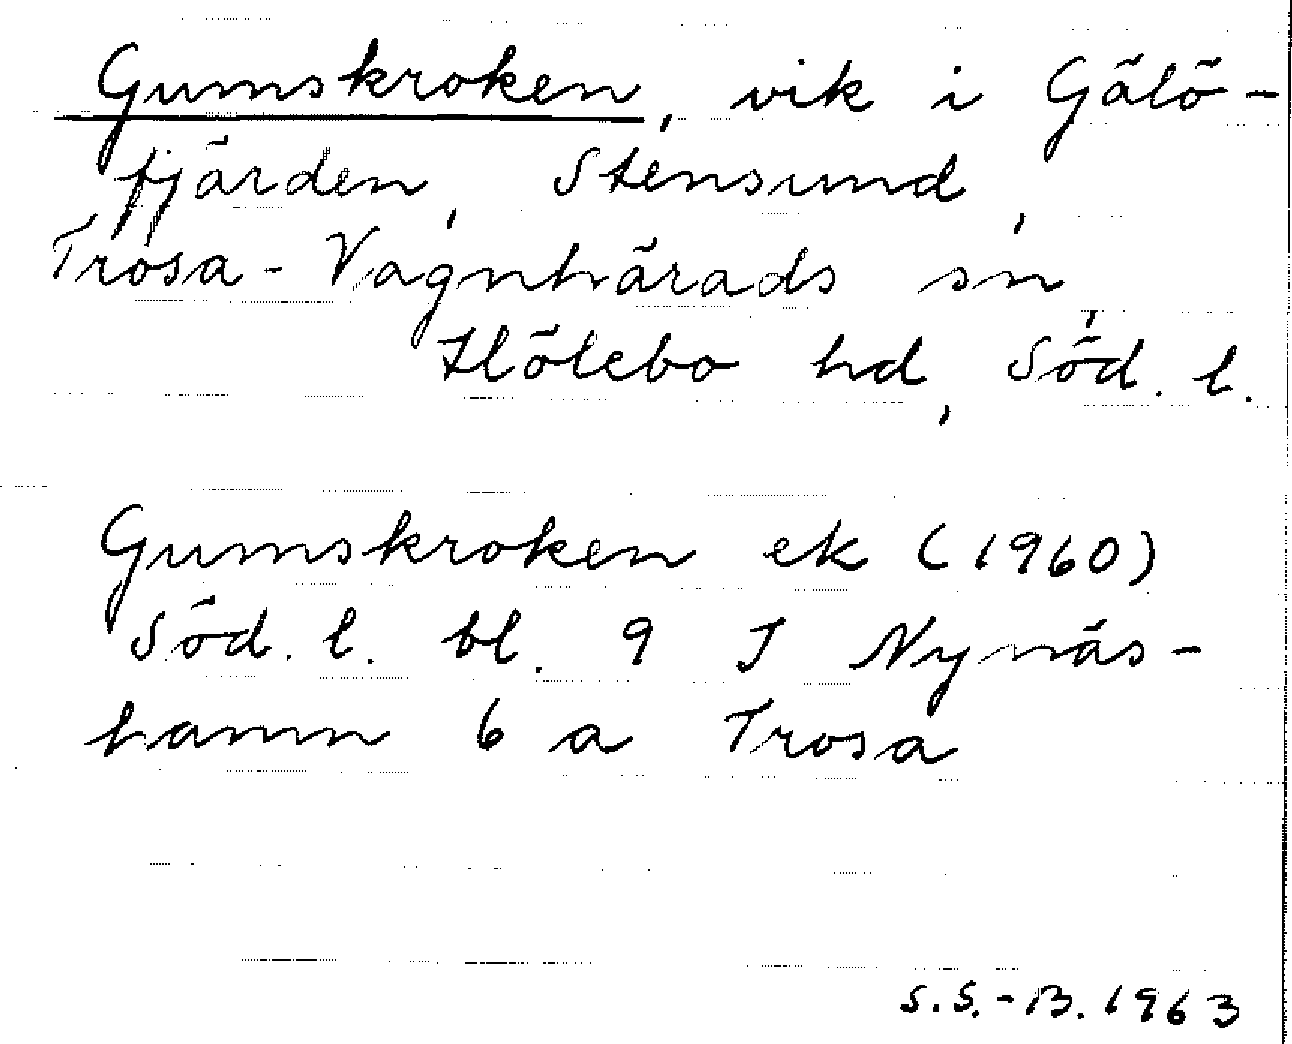 Gumskroken, vik i Gälö-
fjärden, Stensund,
Trosa-Vagnhärads sn,
Hölebo hd, Söd. l.
Gumskroken ek (1960)
Söd. l. bl. 9 I Nynäs-
hamn 6 a Trosa
S.S.-B. 1963